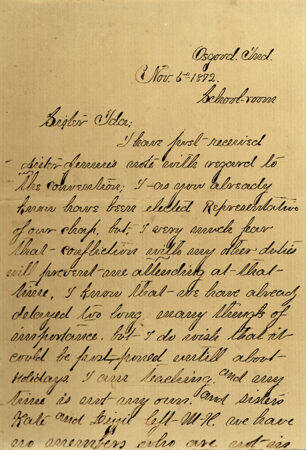 Osgood, Ind.
Nov. 5th 1892
School-room
Sister Ida;
I have just received
sister Jennie's note with regard to
the convention; I as you already
know have been elected Representative
of our chap. but I very much fear
that conflictions with my other duties
will prevent me attending at that
time. I know that we have already
delayed too long many things of
importance, but I do wish that it
could be post poned untill about
Holidays I am teaching and my
time is not my own. and sisters
Kate and left M.H. we have
no members who are not in